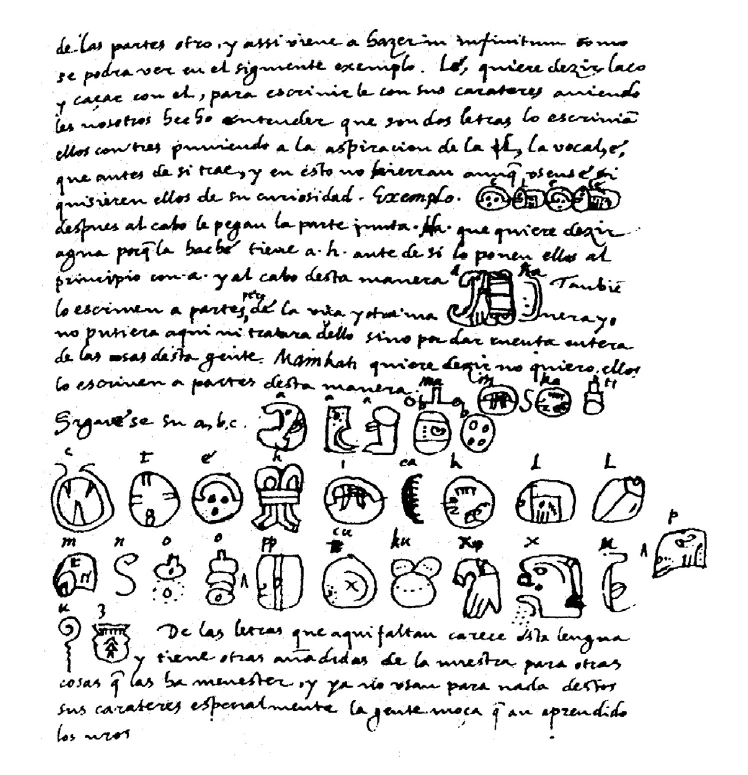 de las partes otro, y assi viene a hazer in infinitum como
se podra ver en el siguiente exemplo. Lé, quiere dezir laço
y caçar con el, para escrivirle con sus carateres aviendo
les nosotros hecho entender que son dos letras lo escrivian
ellos con tres puniendo a la aspiracion de la l, la vocal, é,
que antes de si trae, y en esto no hierran aunq̃ usense, si
quisieren ellos de su curiosidad. Exemplo.
despues al cabo le pegan la parte junta. Ha. que quiere dezir
agua porq̃ la haché tiene a. h. ante de si lo ponen ellos al
principio con a. y al cabo desta manera a ha Tambiē
lo escriven a partes, pero de la una y otra ma nera yo
no pusiera aqui ni tratara dello sino por dar cuenta entera
de las cosas desta gente. Mainkati quiere dezir no quiero, ellos
lo escriven a partes desta manera. ma in ka ti
Siguese su a, b, c. a a a b b
c t é h i ca k l l
m n o o pp cu ku x x u p
u z De las letras que aqui faltan carece esta lengua
y tiene otras añadidas de la nuestra para otras
cosas q̃ las ha menester, y ya no usan para nada destos
sus carateres especialmente la gente moça q̃ an aprendido
los nros